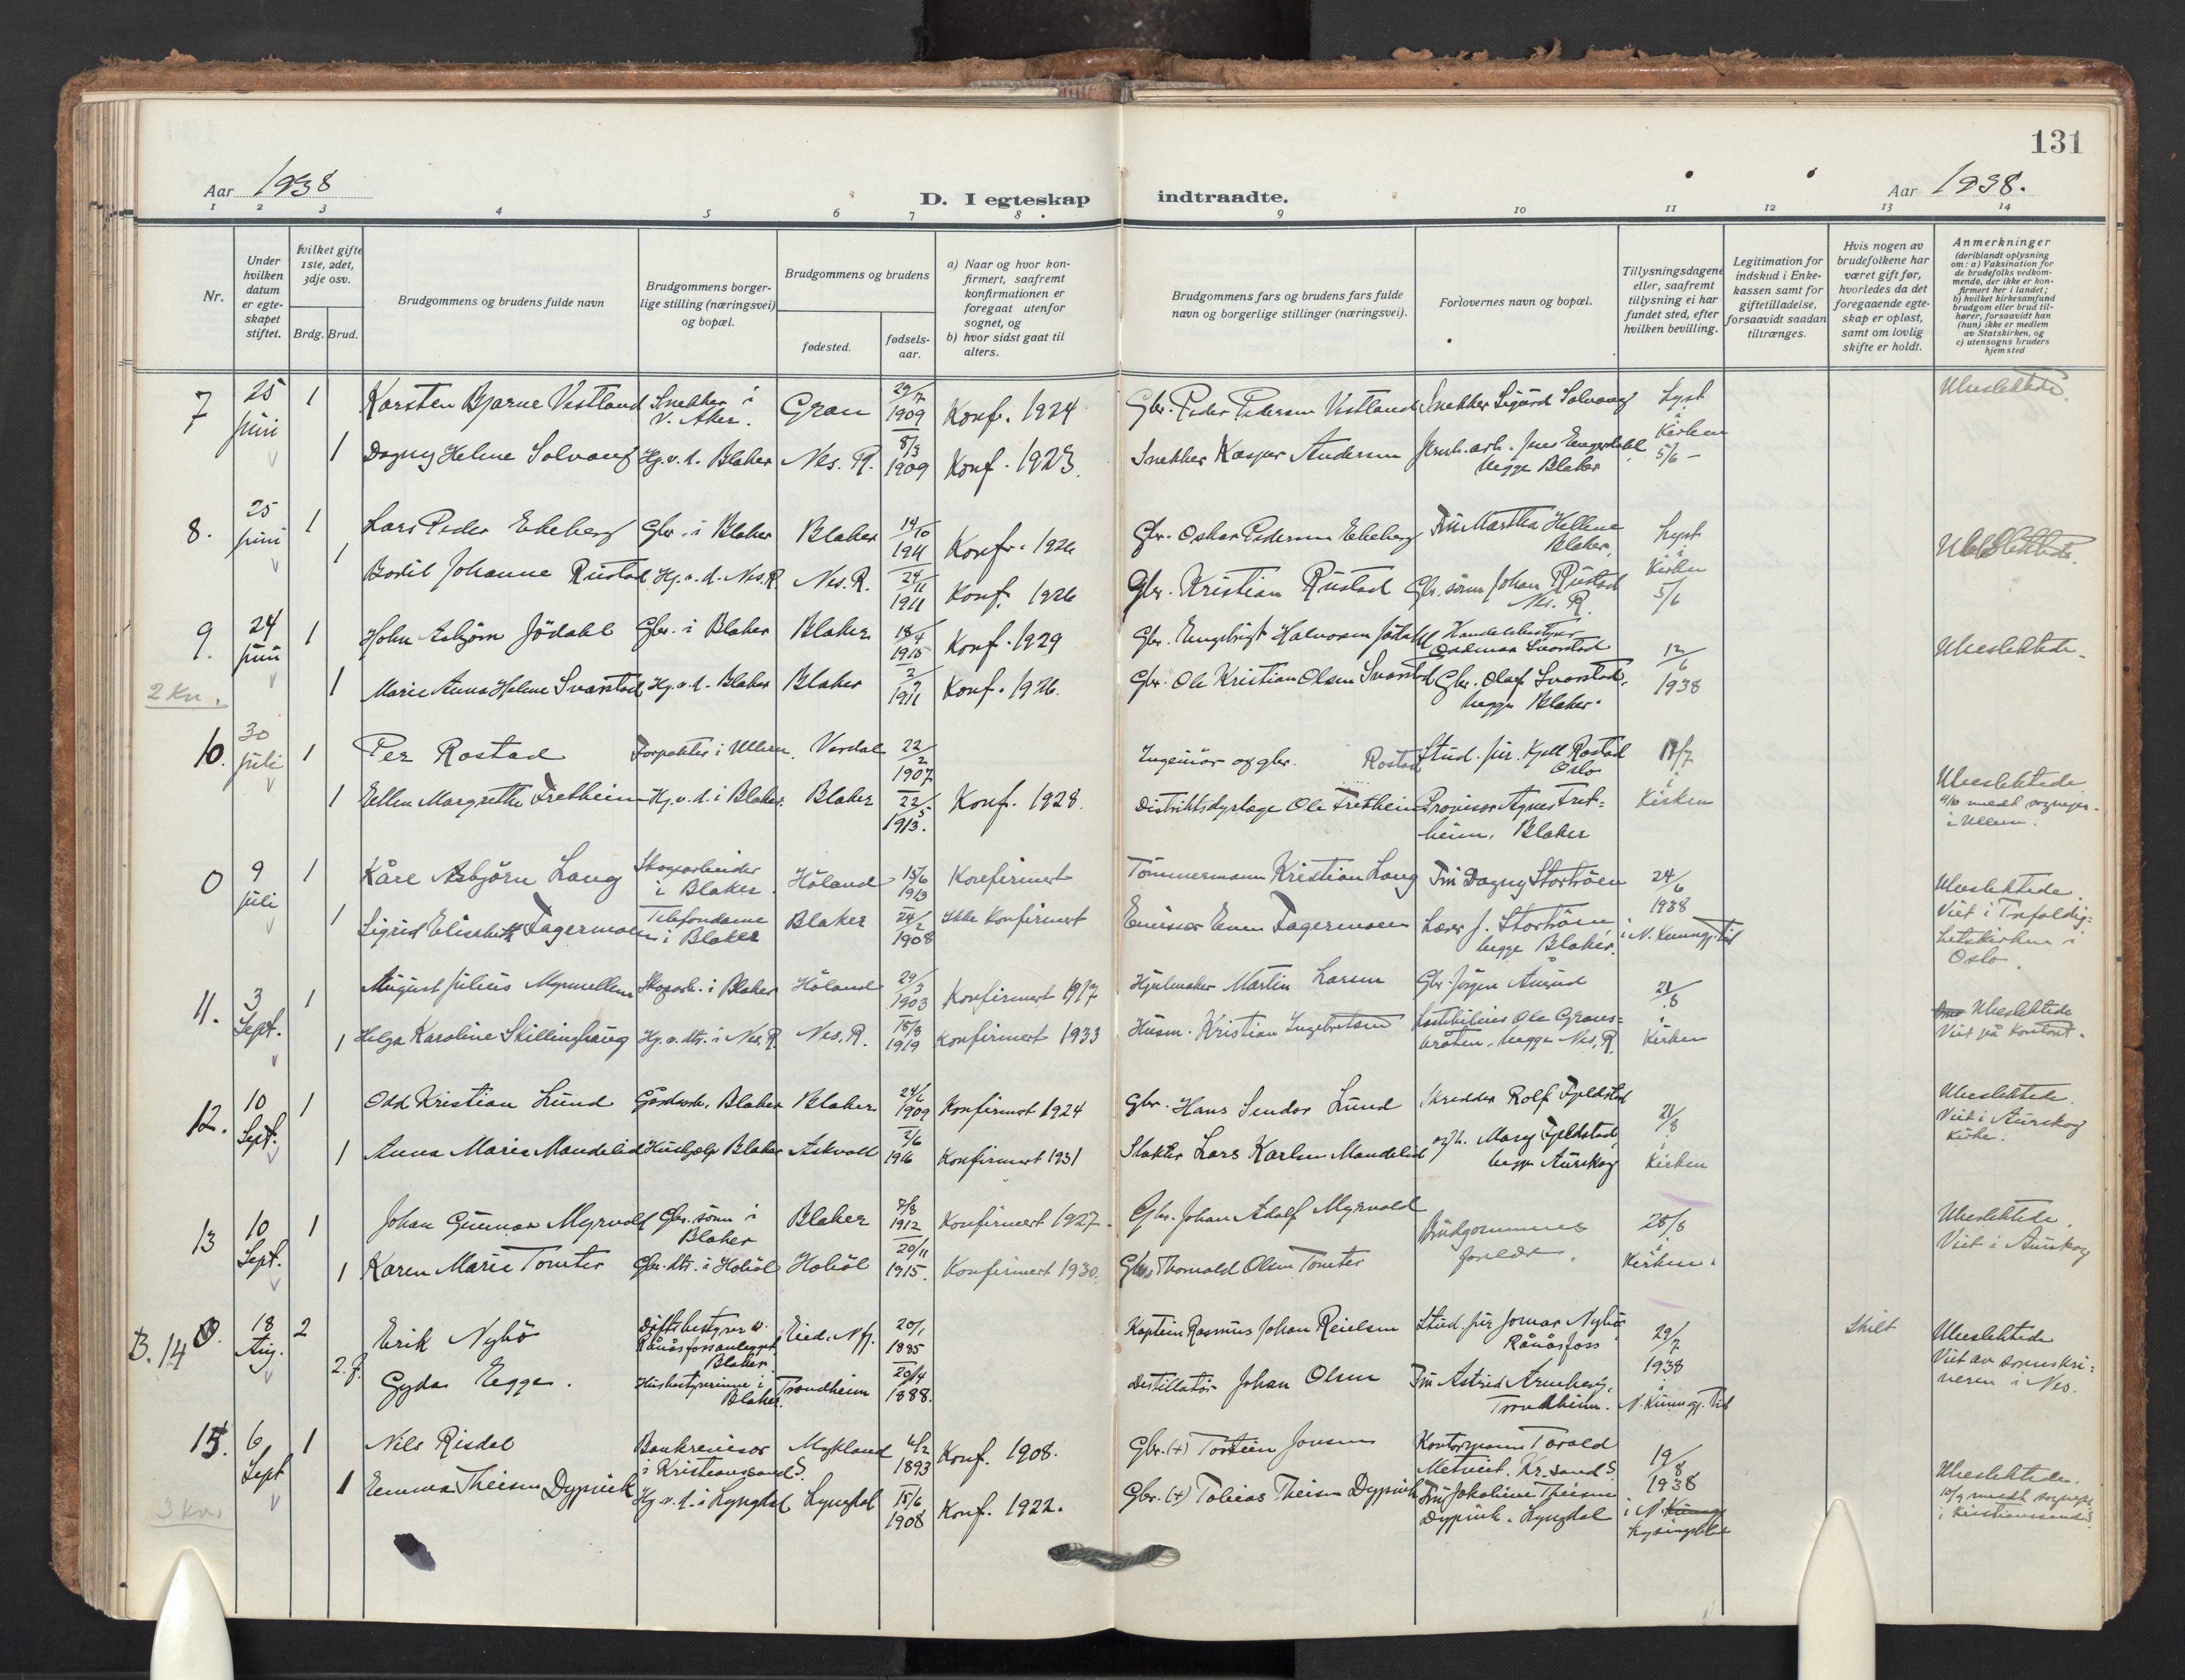 131
Aar 1938
D. I egteskap indtraadte.
Aar 1938.
1 2 3 4 5 6 7 8 9 10 11 12 13 14
Nr.
Under hvilken datum er egteskapet stiftet.
Hvilket gifte 1ste, 2det, 3dje osv.
Brdg. Brud.
Brudgommens og brudens fulde navn
Brudgommens borgerlige stilling (næringsvei) og bopæl.
Brudgommens og brudens
fødested.
fødselsaar.
a) Naar og hvor konfirmert, saafremt konfirmationen er foregaat utenfor sognet, og
b) hvor sidst gaat til alters.
Brudgommens fars og brudens fars fulde navn og borgerlige stillinger (næringsvei).
Forlovernes navn og bopæl.
Tillysningsdagene eller, saafremt tillysning ei har fundet sted, efter hvilken bevilling.
Legitimation for indskud i Enkekassen samt for giftetilladelse, forsaavidt saadan tiltrænges.
Hvis nogen av brudefolkene har været gift før, hvorledes da det foregaaende egteskap er opløst, samt om lovlig skifte er holdt.
Anmerkninger (deriblandt oplysning om: a) Vaksination for de brudefolks vedkommende, der ikke er konfirmert her i landet; b) hvilket kirkesamfund brudgom eller brud tilhører, forsaavidt han (hun) ikke er medlem av Statskirken, og c) utensogns bruders hjemsted
7 25 juni 1 Karsten Bjarne Vestland Snekker i V. Aker. Gran 29/7 1909 Konf. 1924 Gbr. Peder Pedersen Vestland Snekker Sigurd Solvang Lyst i Kirken 5/6 - Ubeslektede.
1 Dagny Helene Solvang Hj.v.d. Blaker Nes. R. 8/3 1909 Konf. 1923. Snekker Kaspar Andersen begge Blaker
8. 25 juni 1 Lars Peder Ekeberg Gbr. i Blaker Blaker 14/10 1911 Konf. 1926 Gbr. Oskar Pedersen Ekeberg Fru Martha Hellene Blaker. Lyst i Kirken 5/6 Ubeslektede.
1 Bodil Johanne Rustad Hj.v.d. Nes. R. Nes. R. 24/11 1911 Konf. 1926 Gbr. Kristian Rustad Gbr. sønn Johan Rustad Nes. R.
9. 24 juni 1 John Asbjörn Jödahl Gbr. i Blaker Blaker 18/4 1915 Konf. 1929 Gbr. Engebrigt Halvorsen Jödahl Handelsbestyrer Oddmar Svarstad 12/6 1938 Ubeslektede.
2 kr. 1 Marie Anna Helene Svarstad Hj.v.d. Blaker Blaker 2/9 1911 Konf. 1926. Gbr. Ole Kristian Olsen Svarstad Gbr. Olaf Svarstad, begge Blaker.
10. 30 juli 1 Per Rostad Forpakter i Ullern. Verdal 22/2 1907 Ingeniör og gbr. Rostad Stud. jur. Kjell Rostad Oslo 17/7 i Kirken
1 Ellen Margrethe Fretheim Hj.v.d. i Blaker. Blaker 22/5 1913. Konf. 1928. Distriktsdyrlege Ole Fretheim Provisor Agnes Fretheim, Blaker Ubeslektede. 4/10 medt sognepr. i Ullern.
0 9 juli 1 Kåre Asbjörn Lang Skogsarbeider i Blaker. Höland 15/6 1913 Konfirmert Tömmermann Kristian Lang Fru Dagny Stortröen 24/6 1938 i N. Kunngj. Tid Ubeslektede. Viet i Trefoldighetskirken i Oslo.
1 Sigrid Elisabeth Fagermoen Telefondame i Blaker Blaker 24/2 1908 Ikke konfirmert Emissær Even Fagermoen Lærer J. Stortröen, begge Blaker.
11. 3 Sept. 1 August Julius Myrmellem Skogsarb. i Blaker Höland 29/3 1903 Konfirmert 1917 Hjulmaker Martin Larsen Gbr. Jörgen Aurud 21/8 i Kirken Ubeslektede Viet på kontoret.
1 Helga Karoline Skillinghaug Hj.v.dtr. i Nes. R. Nes. R. 15/3 1919 Konfirmert 1933 Husm. Kristian Ingebretsen Ole Gransbråten, begge Nes. R.
12. 10 Sept. 1 Odd Kristian Lund Gårdsarb. Blaker Blaker 24/6 1909 Konfirmert 1924 Gbr. Hans Sendor Lund Skredder Rolf Fjeldstad 21/8 i Kirken Ubeslektede. Viet i Aurskog Kirke.
1 Anna Marie Mandelid Hushjelp Blaker Askvoll 2/6 1916 Konfirmert 1931 Slakter Lars Karlsen Mandelid og h. Mary Fjeldstad, begge Aurskog
13 10 Sept. 1 Johan Gunnar Myrvold Gbr. sönn i Blaker Blaker 7/8 1912 Konfirmert 1927. Gbr. Johan Adolf Myrvold Brudgommens foreldre. 28/8 i Kirken. Ubeslektede. Viet i Aurskog
1 Karen Marie Tomter Gbr. dtr. i Hoböl Hoböl 20/11 1915. Konfirmert 1930. Gbr. Thorvald Olsen Tomter
B. 14 18 Aug. 2 Erik Nybö Driftsbestyrer v. Rånåsfossanlegget, Blaker. Eid. Nfj. 20/1 1885 Kaptein Rasmus Johan Reielsen Stud. jur. Jomar Nybö Rånåsfoss 29/7 1938 i N. Kunngj. Tid Skilt Ubeslektede Viet av sorenskriveren i Nes.
2. f. Gyda Egge. Husbestyrerinne i Blaker. Trondheim 20/4 1888. Destillatör Johan Olsen Fru Astrid Arneberg, Trondheim.
15. 6 Sept 1 Nils Risdal Bankrevisor i Kristiansand S. Mykland 6/2 1893 Konf. 1908. Gbr. (+) Torstein Jonsen Kontormann Torald Metveit. Kr.sand S. 19/8 1938 i N. Lysingsblad
3 kr. 1 Emma Theisen Dypvik Hj.v.d. i Lyngdal Lyngdal 15/6 1908 Konf. 1922. Gbr. (+) Tobias Theisen Dypvik Fru Jakobine Theisen Dypvik. Lyngdal Ubeslektede. 10/9 medt sognepr. i Kristiansand S.